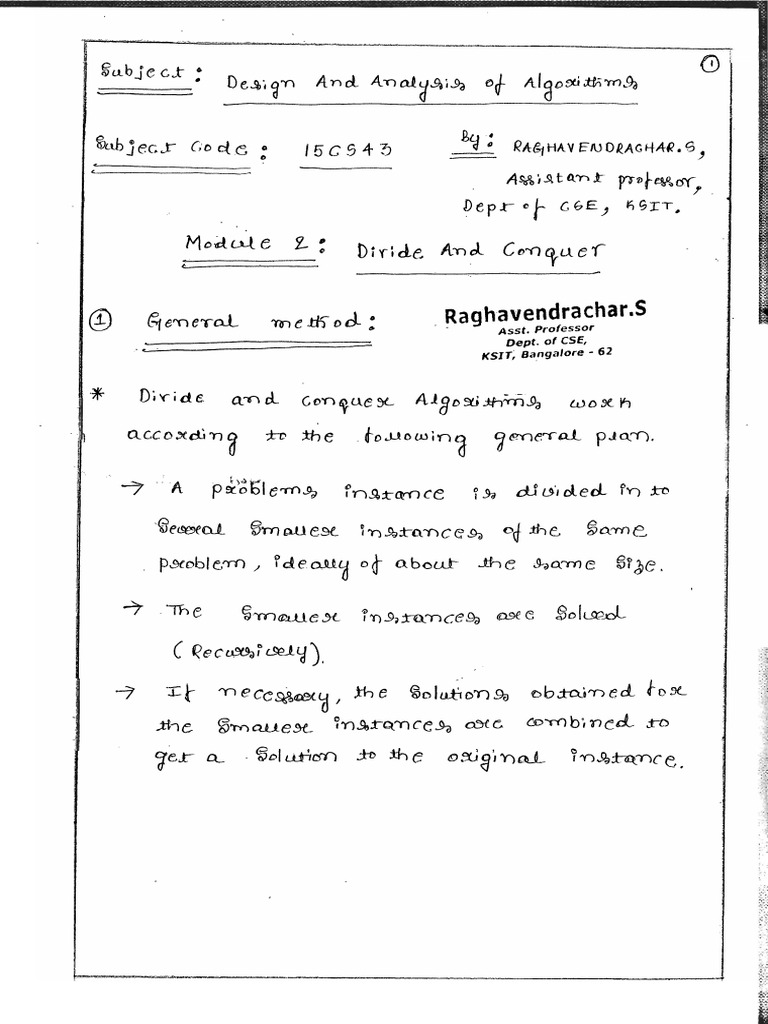 1
Subject : Design And Analysis of Algorithms
Subject Code : 15CS43 By : RAGHAVENDRACHAR.S,
Assistant professor,
Dept of CSE, KSIT.
Module 2 : Divide And Conquer
1 General method :
Raghavendrachar.S
Asst. Professor
Dept. of CSE,
KSIT, Bangalore - 62
* Divide and conquer Algorithms work
according to the following general plan.
→ A problems instance is divided in to
Several Smaller instances of the Same
problem, ideally of about the same Size.
→ The Smaller instances are Solved
(Recursively).
→ If necessary, the Solutions obtained for
the Smaller instances are combined to
get a Solution to the original instance.